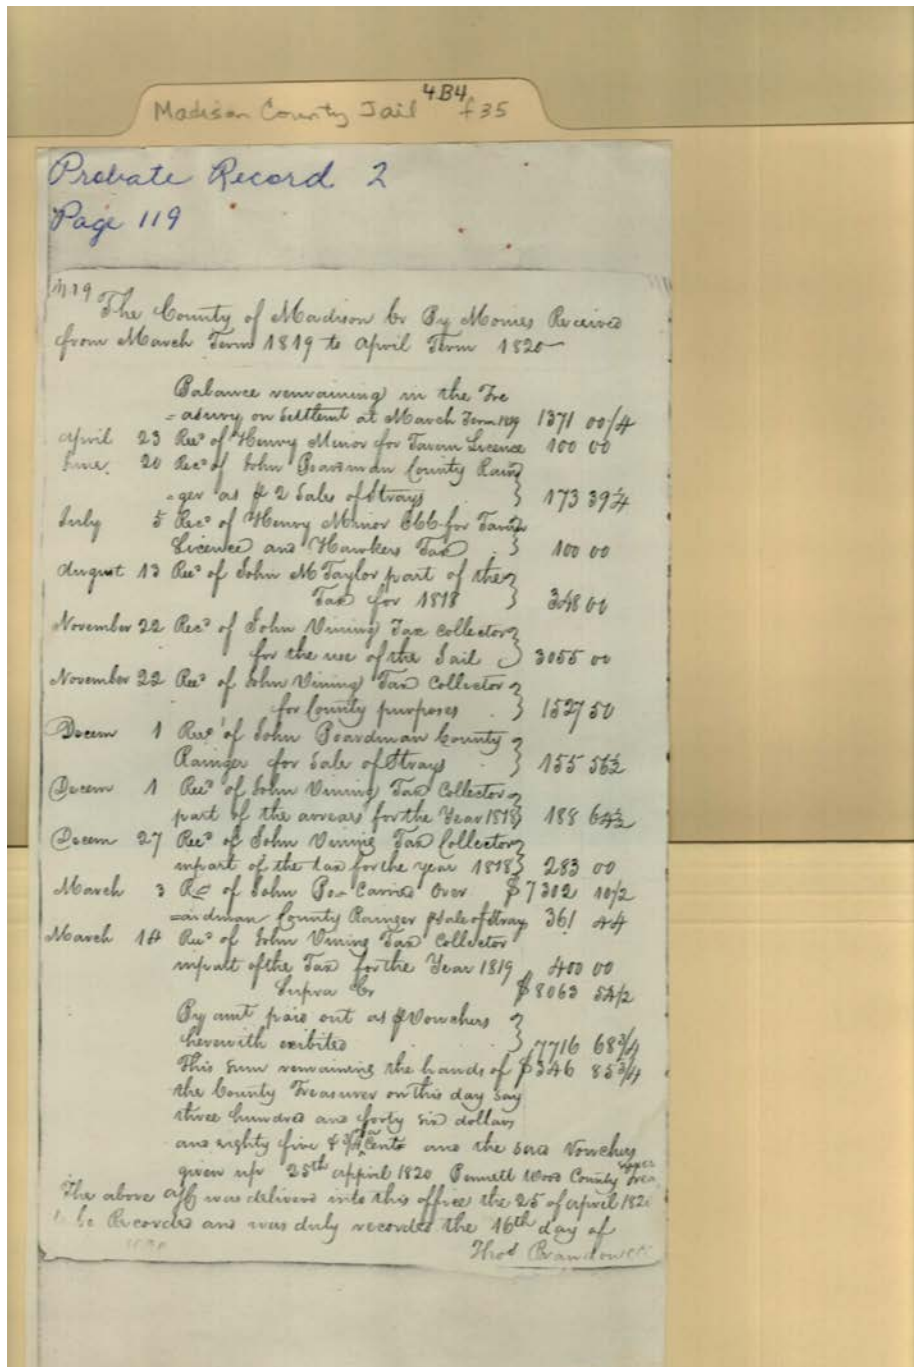 4B4
Madison County Jail f35
Probate Record 2
Page 119
The County of Madison Cr By Monies Received
from March Term 1819 to April Term 1820
Balance remaining in the Tre
=asury on Settlemt at March Term 1819 1371 00/4
April 23 Recd of Henry Minor for Tavern Licence 100 00
June 20 Recd of John Boardman County Rain
=ger as P 2 Sales of Strays } 173 39¼
July 5 Recd of Henry Minor for Tavern
Licence and Hawkers Tax } 100 00
August 13 Recd of John M Taylor part of the
Tax for 1818 } 348 00
November 22 Recd of John Vining Tax collector
for the use of the Jail } 3055 00
November 22 Recd of John Vining Tax Collector
for County purposes } 1527 50
Decem 1 Recd of John Boardman County
Rainger for Sale of Strays } 155 56½
Decem 1 Recd of John Vining Tax Collector
part of the arrears for the Year 1818 } 188 64½
Decem 27 Recd of John Vining Tax Collector
inpart of the tax for the year 1818 } 283 00
March 3 Rd of John Bo= Carried Over $7302 10/2
=ardman County Rainger P Sale of Stray 361 44
March 14 Recd of John Vining Tax Collector
inpart of the Tax for the Year 1819 400 00
Supra Cr $8063 54/2
By amt paid out as P Vouchers
herewith exibited } 7716 68¾
This sum remaining the hands of $346 85¾
the County Treasurer on this day say
three hundred and forty six dollars
and eighty five & ¾ Cents and the said Vouchers
given up 25th appril 1820 Bennett Wood County Trea
The above was delivered into this office the 25 of April 1820
to be Recorded and was duly recorded the 16th day of
Thos Brandon